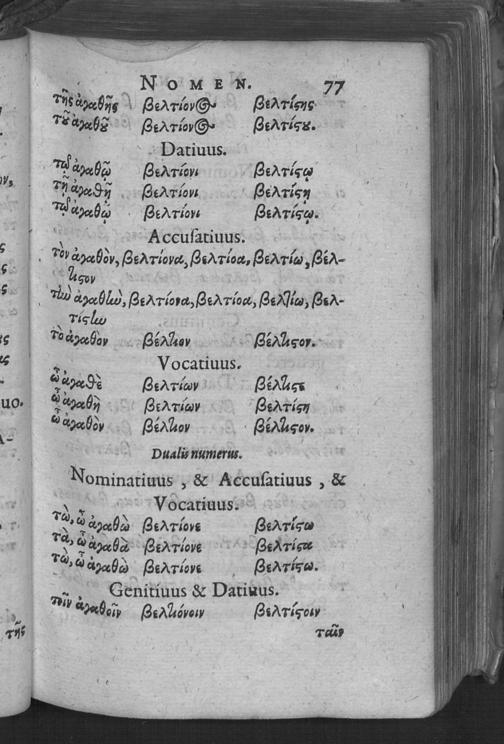 NOMEN. 77
τῆς ἀγαθῆς βελτίονος βελτίϛης
τοῦ ἀγαθοῦ βελτίονος βελτίϛου.
Datiuus.
τῷ ἀγαθῷ βελτίονι βελτίϛῳ
τῇ ἀγαθῇ βελτίονι βελτίϛῃ
τῷ ἀγαθῷ βελτίονι βελτίϛῳ.
Accuſatiuus.
τὸν ἀγαθὸν, βελτίονα, βελτίοα, βελτίω, βέλ-
τιϛον
τὴν ἀγαθὴν, βελτίονα, βελτίοα, βελτίω, βελ-
τίϛην
τὸ ἀγαθὸν βέλτιον βέλτιϛον.
Vocatiuus.
ὦ ἀγαθὲ βελτίων βέλτιϛε
ὦ ἀγαθὴ βελτίων βελτίϛη
ὦ ἀγαθὸν βέλτιον βέλτιϛον.
Dualis numerus.
Nominatiuus, & Accuſatiuus, &
Vocatiuus.
τὼ, ὦ ἀγαθὼ βελτίονε βελτίϛω
τὰ, ὦ ἀγαθὰ βελτίονε βελτίϛα
τὼ, ὦ ἀγαθὼ βελτίονε βελτίϛω.
Genitiuus & Datiuus.
τοῖν ἀγαθοῖν βελτιόνοιν βελτίϛοιν
ταῖν
uo.
τῆς